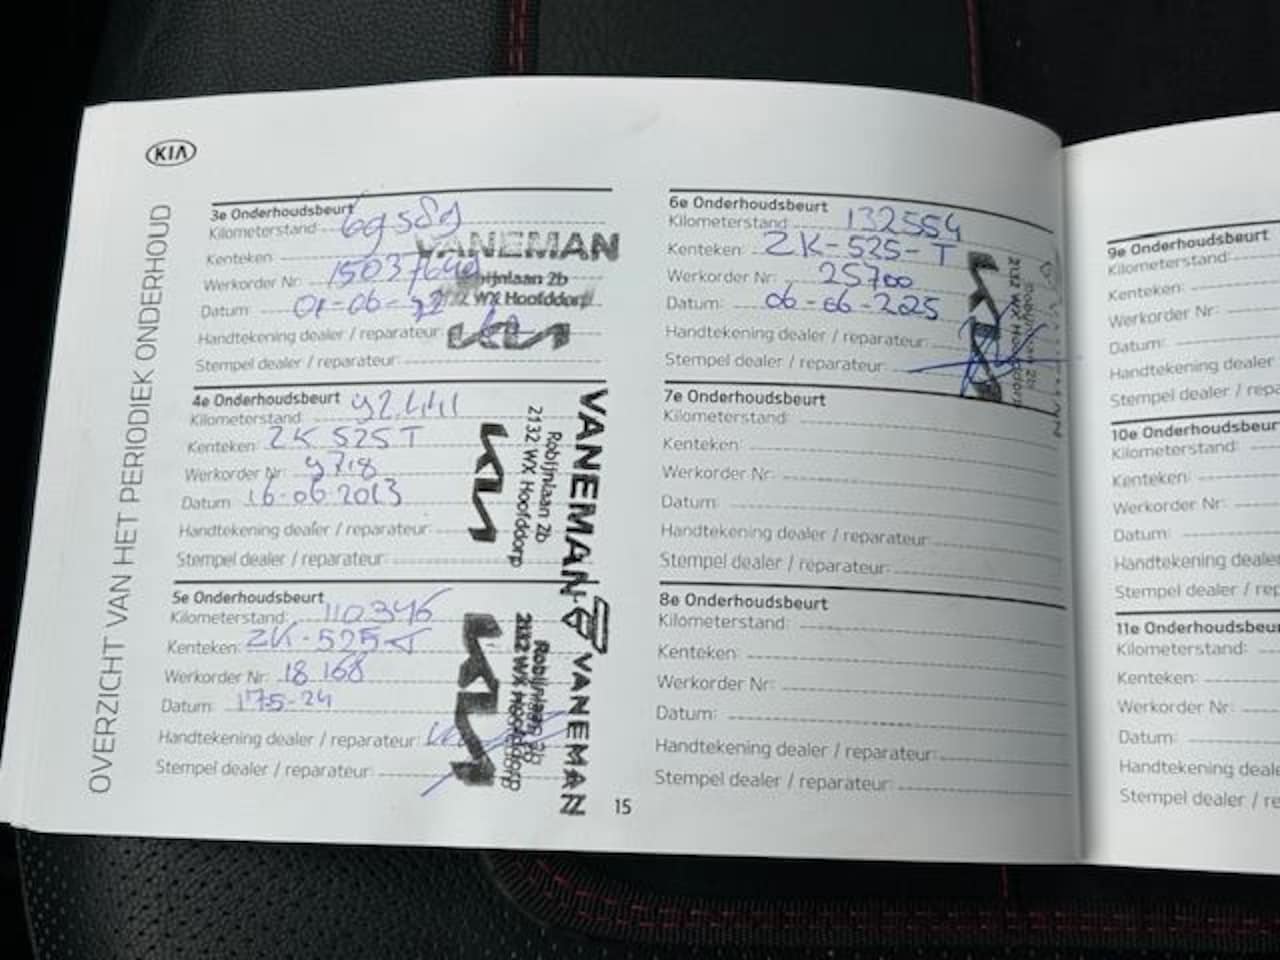 KIA
OVERZICHT VAN HET PERIODIEK ONDERHOUD
3e Onderhoudsbeurt
Kilometerstand 69589
Kenteken
Werkorder Nr:
Datum: 01-06-22
Handtekening dealer / reparateur:
Stempel dealer / reparateur:
VANEMAN
2b
WX Hoofddorp
KIA
4e Onderhoudsbeurt
Kilometerstand 92.441
Kenteken: ZK 525 T
Werkorder Nr: 9718
Datum 16-06 2013
Handtekening dealer / reparateur:
Stempel dealer / reparateur:
KIA
2132 WX Hoofddorp
Robijnlaan 2b
VANEMAN
5e Onderhoudsbeurt
Kilometerstand: 110346
Kenteken: ZK-525-T
Werkorder Nr: 18168
Datum: 17-5-24
Handtekening dealer / reparateur:
Stempel dealer / reparateur:
KIA
2132 WX Hoofddorp
Robijnlaan 2b
VANEMAN
15
6e Onderhoudsbeurt
Kilometerstand 132554
Kenteken: ZK-525-T
Werkorder Nr: 25700
Datum: 06-06-2025
Handtekening dealer / reparateur:
Stempel dealer / reparateur:
KIA
2132 WX Hoofddorp
Robijnlaan 2b
7e Onderhoudsbeurt
Kilometerstand:
Kenteken:
Werkorder Nr:
Datum:
Handtekening dealer / reparateur:
Stempel dealer / reparateur:
8e Onderhoudsbeurt
Kilometerstand:
Kenteken:
Werkorder Nr:
Datum:
Handtekening dealer / reparateur:
Stempel dealer / reparateur:
9e Onderhoudsbeurt
Kilometerstand:
Kenteken:
Werkorder Nr:
Datum:
Handtekening dealer
Stempel dealer / repa
10e Onderhoudsbeur
Kilometerstand:
Kenteken:
Werkorder Nr:
Datum:
Handtekening dealer
Stempel dealer / rep
11e Onderhoudsbeu
Kilometerstand:
Kenteken:
Werkorder Nr:
Datum:
Handtekening deale
Stempel dealer / re